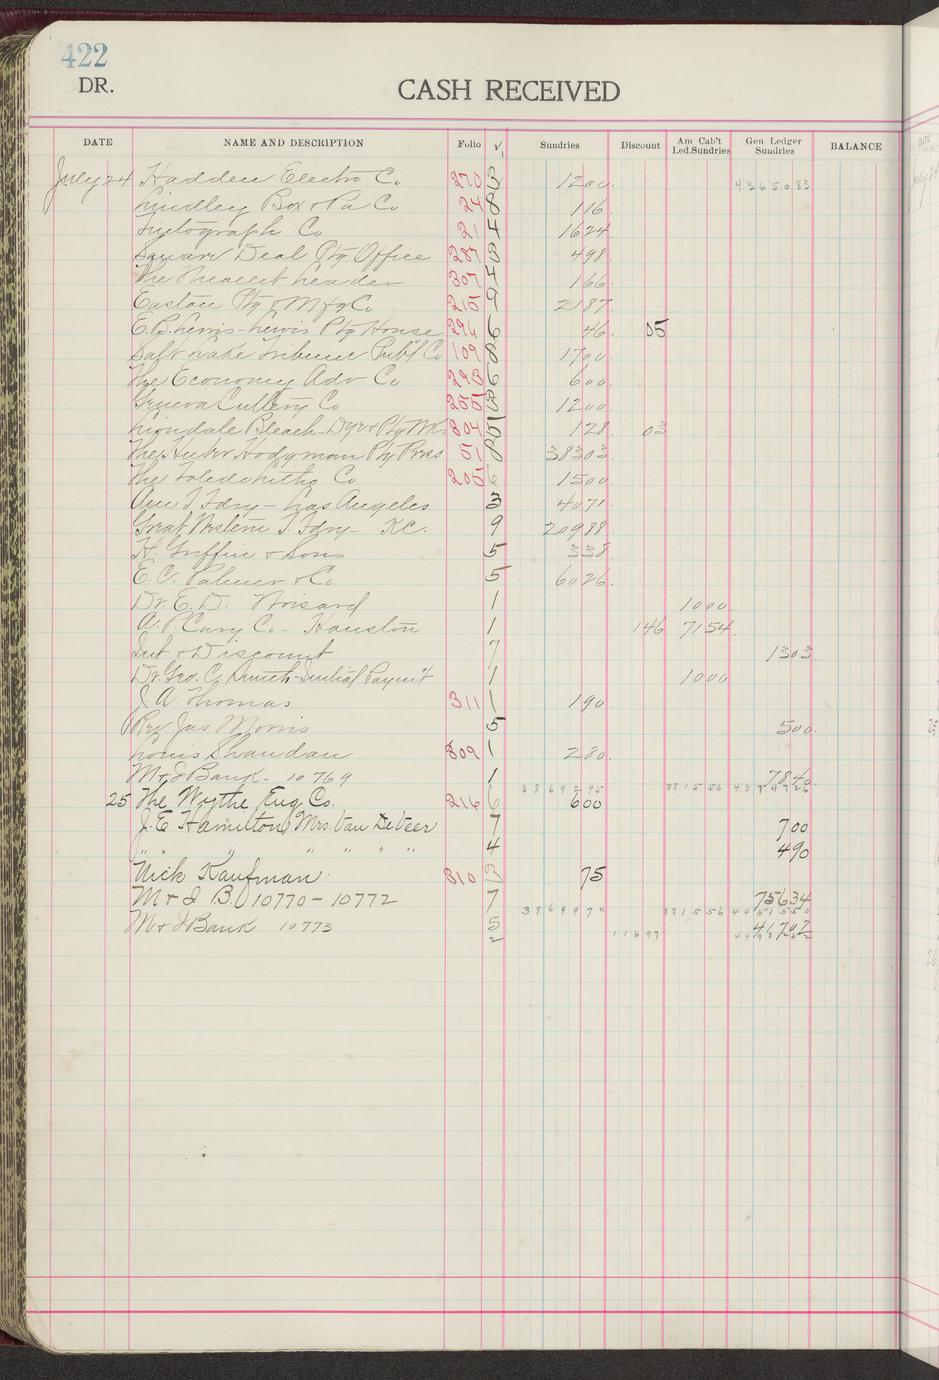 422
DR.
CASH RECEIVED
DATE NAME AND DESCRIPTION Folio √ Sundries Discount Am Cab't Led.Sundries Gen Ledger Sundries BALANCE
July 24 Hadden Electro Co. 270 3 1200. 4365083
Lindley Box & Pa Co 24 8 116.
Tintograph Co 21 4 1624
Square Deal Ptg Office 287 3 498.
The Leader 307 4 166.
Easton Ptg & Mfg Co. 215 9 2187.
E.B. Lewis - Lewis Ptg House 296 6 46. 05
Salt Lake Tribune Pub'l Co 109 8 1700.
The Economy Adv Co 293 6 600.
Geneva Cutlery Co 255 3 1200.
Liondale Bleach-Dye & Ptg Wks 304 5 128. 03
The Huber Hodgman Ptg Press 51 8 38303.
The Toledo Litho Co 205 6 1500.
Am T Fdry - Los Angeles 3 4071.
Great Western T. Fdry - K.C. 9 20988
H. Griffin & Sons 5 338
E. C. Palmer & Co 5 6026.
Dr. E. D. 1 1000
A. P. Cary Co - Houston 1 146 7154.
Int & Discount 7 1303.
Dr. Geo. C. - Initial Paym't 1 1000
J. A Thomas 311 1 190.
Rev. Jas Morris 5 500.
Louis Shandan 309 1 280.
M & I Bank - 10769 1 7840.
3869295 881556 4374726
25 The Wythe Eng Co. 216 6 600
J. E Hamilton Mrs. Van DeVeer 7 700
" " " " " " 4 490
Nick Kaufman 310 3 75
M & I B. 10770 - 10772 7 75634
3869970 881556 4451550
M & I Bank 10773 5 41702
2 11697 4493252